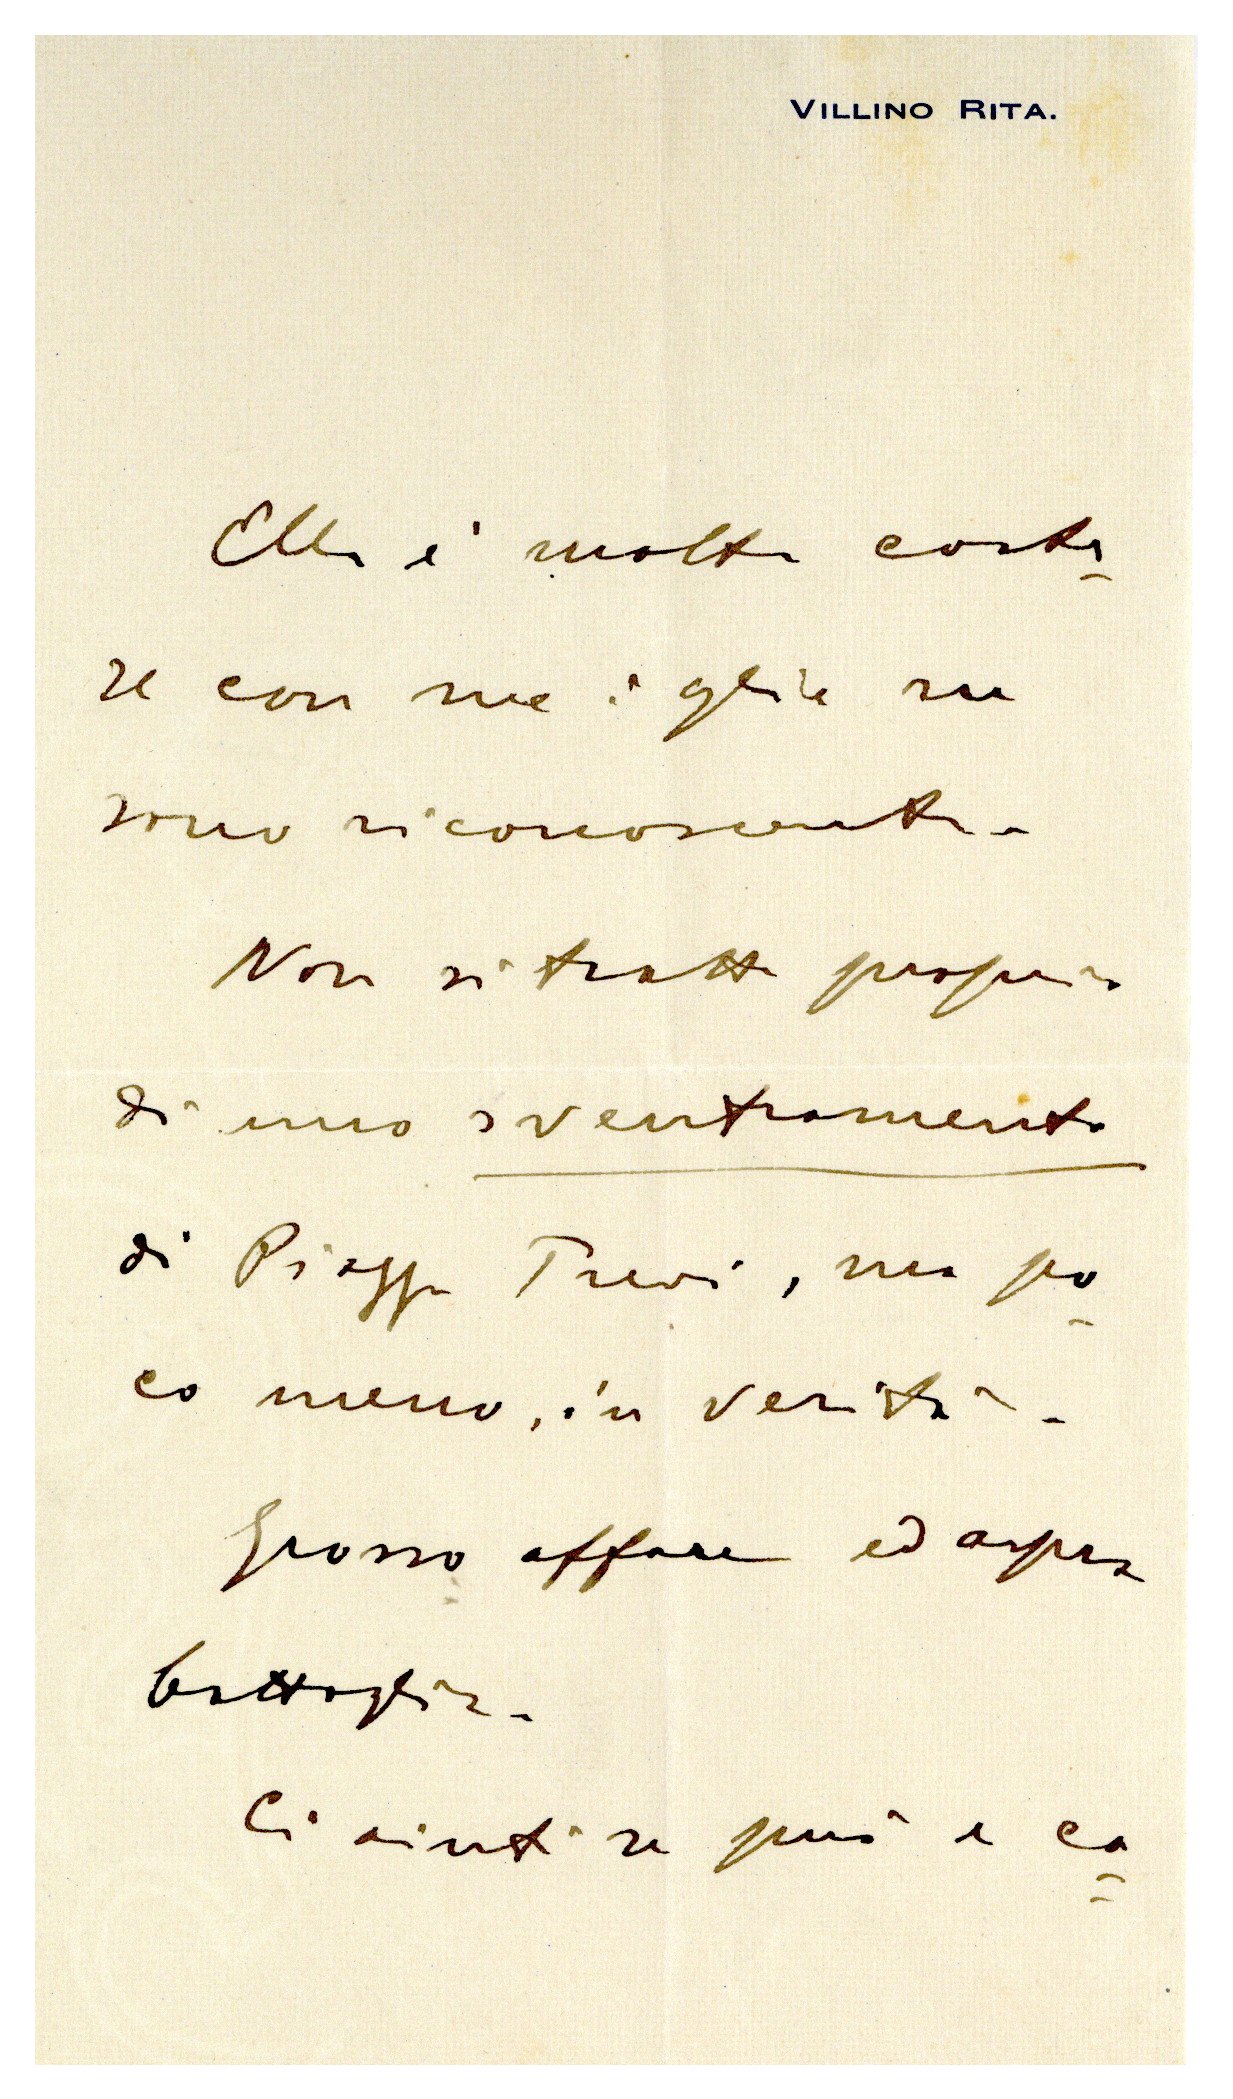 VILLINO RITA.
Ella è molto corte
se con me: gliene
sono riconoscente.
Non si tratta proprio
di uno sventramento
di Piazza Trevi, ma po
co meno, in verità.
Grosso affare ed aspra
battaglia.
Ci aiuti se può e co